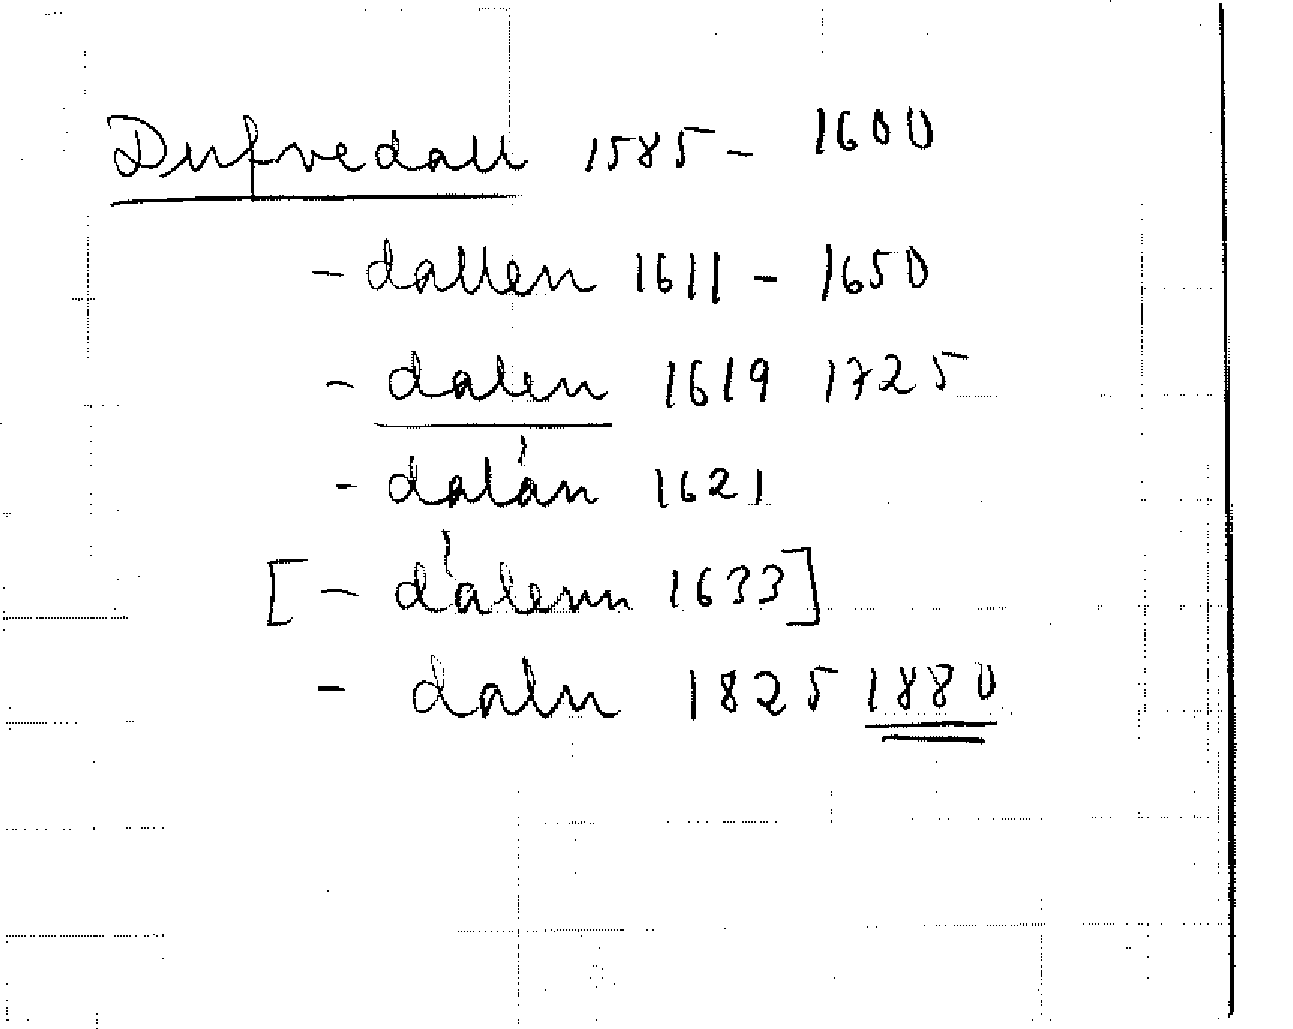 Dufvedall 1585 - 1600
- dallen 1611 - 1650
- dalen 1619 1725
- dalån 1621
[- dålenn 1633]
- daln 1825 1880